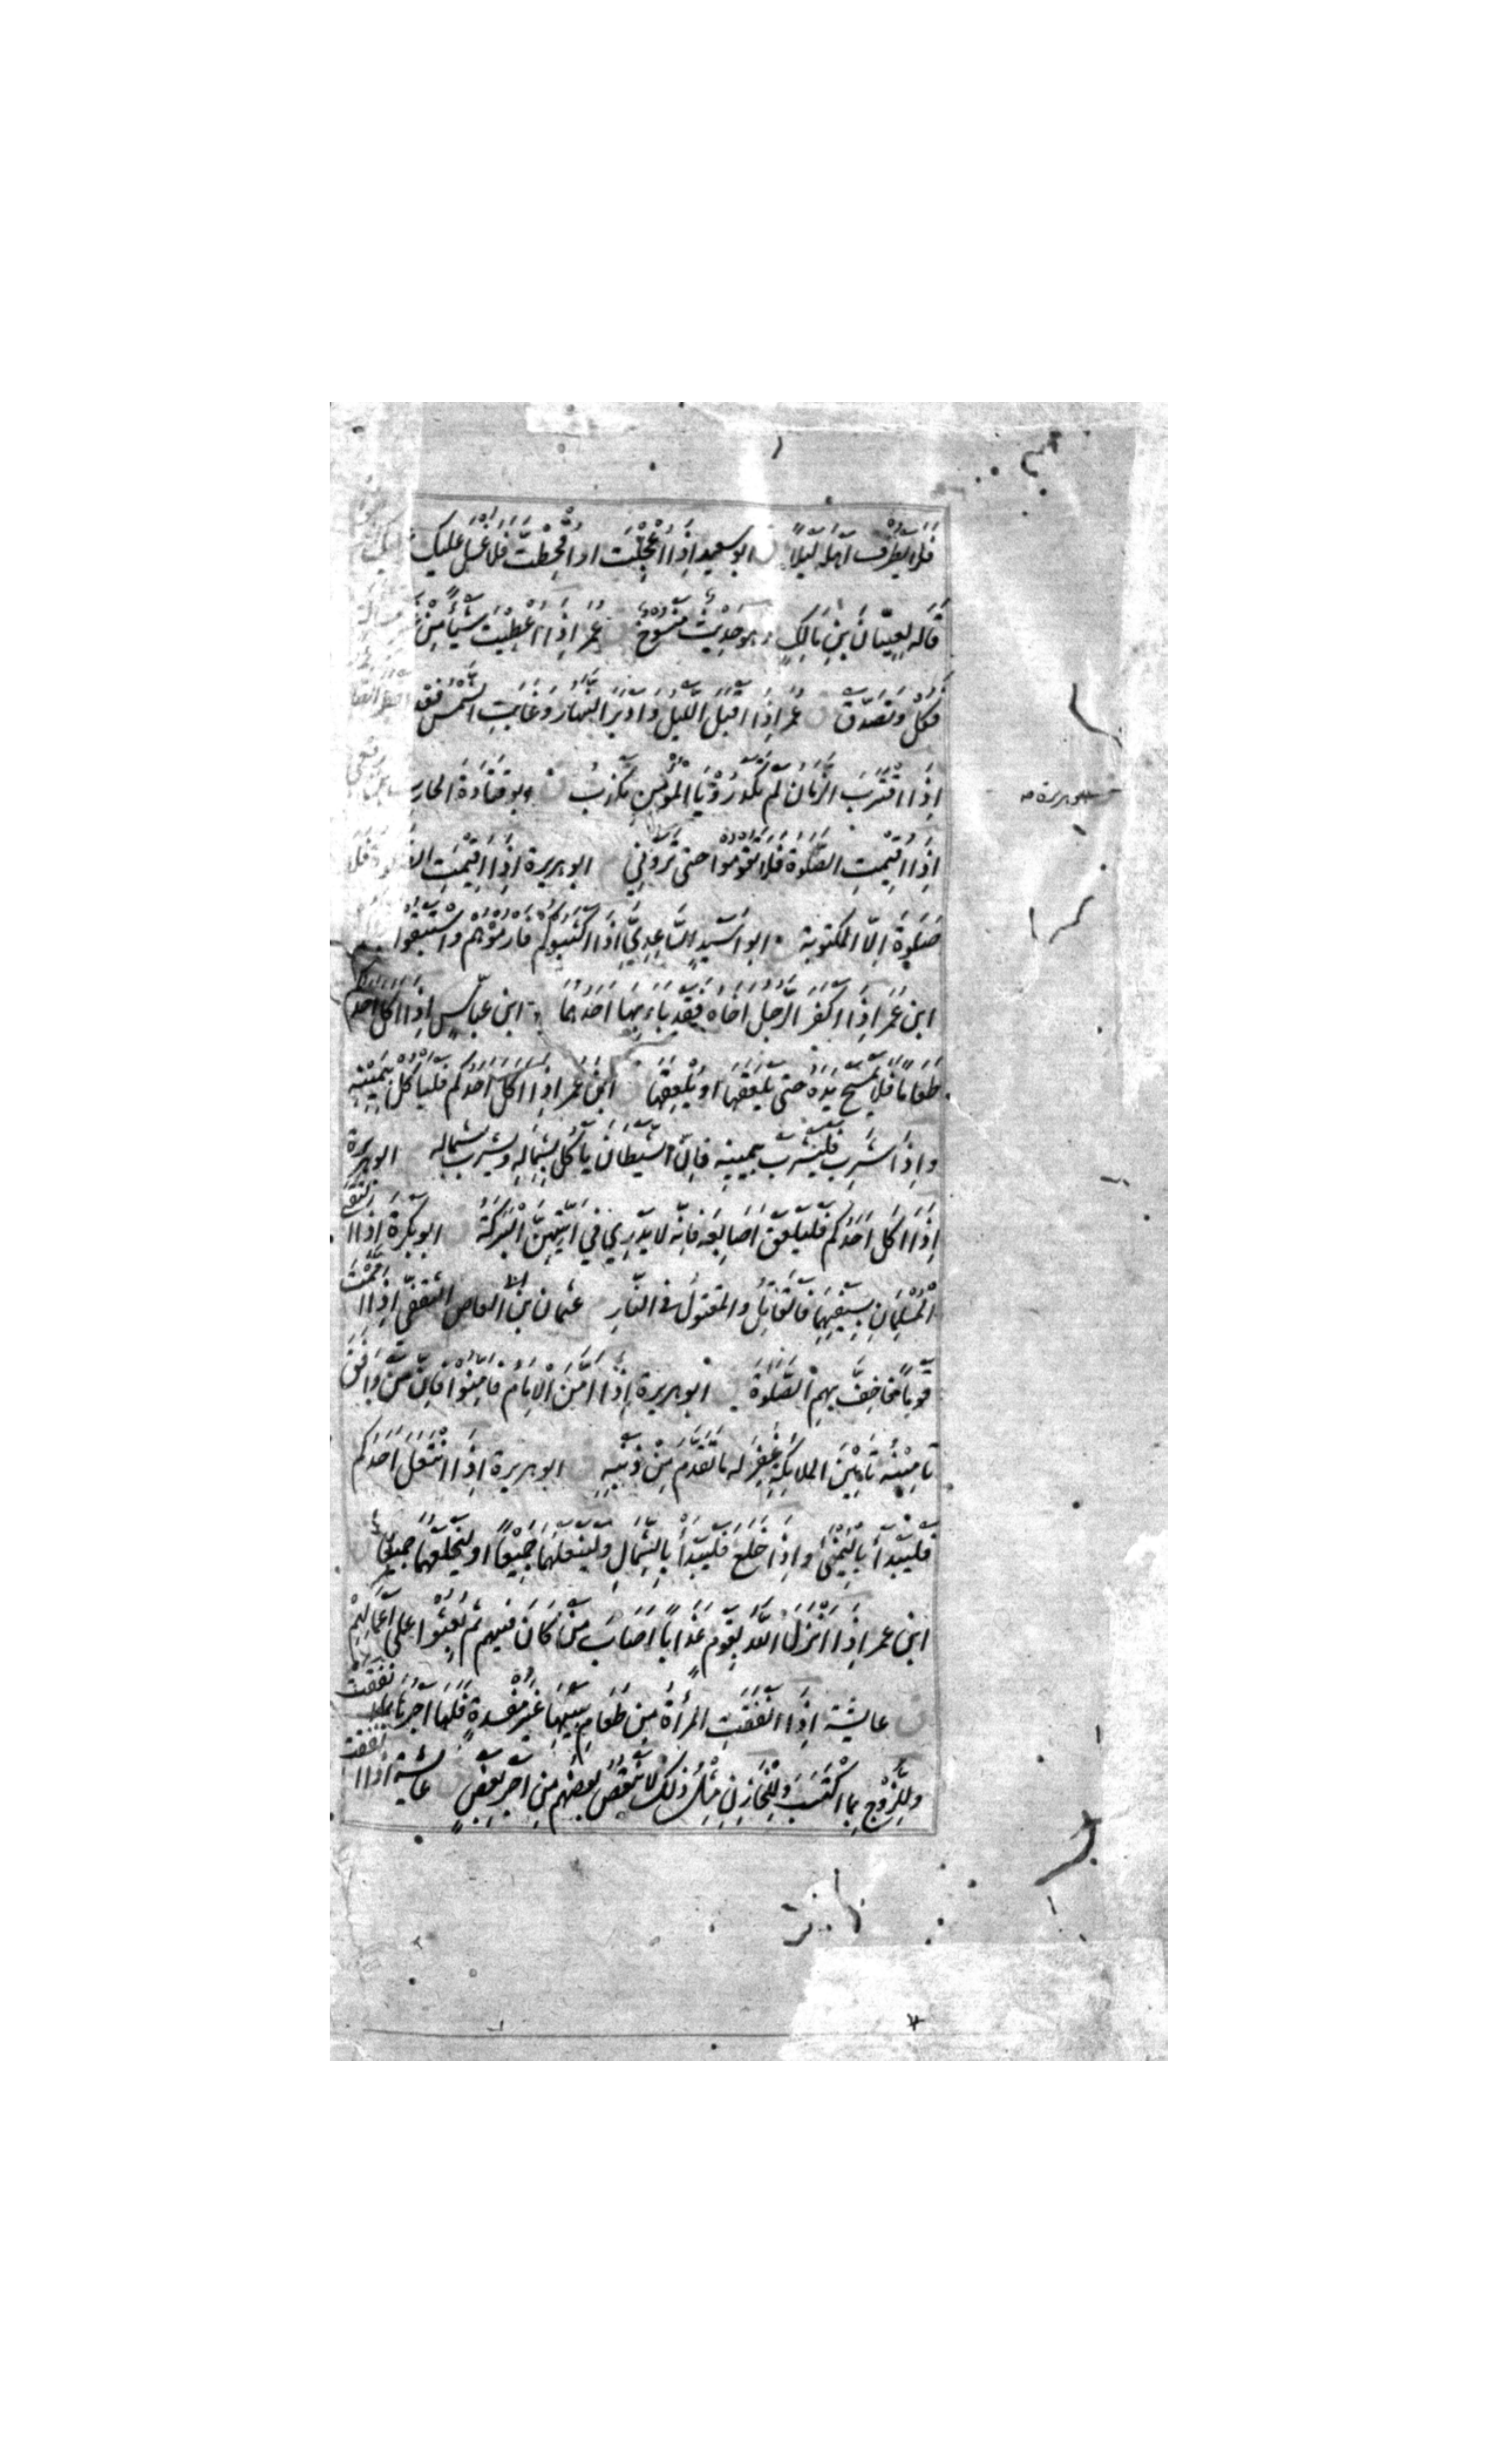 فَلَا يَطْرُقْ اَهْلَهُ لَيْلًا ابو سعيد اِذَا اُعْجِلْتَ او اُقْحِطْتَ فلا غُسْلَ عليك
قَالَه لِعِتْبَانَ بْنِ مَالِكٍ وهو حَدِيْثٌ مَنْسُوْخٌ عُمَرُ اِذَا اُعْطِيْتَ شَيْئًا مِنْ
فَكُلْ وَتَصَدَّقْ عُمَرُ اِذَا اَقْبَلَ اللَّيْلُ وَاَدْبَرَ النَّهَارُ وَغَابَتِ الشَّمْسُ فقد
اِذَا اقْتَرَبَ الزَّمَانُ لَمْ تَكَدْ رُؤْيَا الْمُؤْمِنِ تَكْذِبُ ابو قتادة الحارث
اِذَا اُقِيْمَتِ الصَّلٰوةُ فَلَا تَقُوْمُوْا حتى تَرَوْنِيْ ابو هريرة اِذَا اُقِيْمَتِ الصلوة فلا
صَلٰوةَ اِلَّا المكتوبة ابو اُسَيْدٍ السَّاعِدِيّ اِذَا اَكْثَبُوكُمْ فَارْمُوْهُمْ وَاسْتَبْقُوا
ابن عُمَر اِذَا اَكْفَرَ الرَّجُلُ اَخَاهُ فَقَدْ بَاءَ بِهَا اَحَدُهُمَا ابن عباسٍ اِذَا اَكَلَ اَحَدُكُم
طَعَامًا فَلَا يَمْسَحْ يَدَهُ حتى يَلْعَقَهَا اَوْ يُلْعِقَهَا ابن عمر اِذَا اَكَلَ اَحَدُكُم فَلْيَأْكُلْ بِيَمِيْنِهِ
وَاِذَا شَرِبَ فَلْيَشْرَبْ بِيَمِيْنِهِ فَاِنَّ الشَّيْطَانَ يَأْكُلُ بِشِمَالِهِ وَيَشْرَبُ بشماله ابو هريرة
اِذَا اَكَلَ اَحَدُكُم فَلْيَلْعَقْ اَصَابِعَه فَاِنَّه لَا يَدْرِيْ فِيْ اَيَّتِهِنَّ الْبَرَكَةُ ابو بكرة اِذَا الْتَقَى
الْمُسْلِمَانِ بِسَيْفَيْهِمَا فَالْقَاتِلُ وَالْمَقْتُولُ فى النَّارِ عثمان بن ابى العاص الثقفيّ اِذَا اَمَمْتَ
قَوْمًا فَاَخِفَّ بِهِمُ الصَّلٰوةَ ابو هريرة اِذَا اَمَّنَ الْاِمَامُ فَاَمِّنُوْا فَاِنَّ مَنْ وَافَقَ
تَامِيْنُه تَامِيْنَ الملائِكَةِ غُفِرَ لَه مَا تَقَدَّمَ مِنْ ذَنْبِهِ ابو هريرة اِذَا انْتَعَلَ اَحَدُكُم
فَلْيَبْدَأْ بِالْيُمْنَى وَاِذَا خَلَعَ فَلْيَبْدَأْ بِالشِّمَالِ وَلْيَنْعَلْهُمَا جَمِيْعًا اَوْ لِيَخْلَعْهُمَا جَمِيْعًا
ابن عمر اِذَا اَنْزَلَ اللهُ بِقَوْمٍ عَذَابًا اَصَابَ مَنْ كَانَ فيهم ثم بُعِثُوْا على اَعْمَالِهِمْ
ق عايشة اِذَا اَنْفَقَتِ المرأةُ مِنْ طَعَامِ بَيْتِهَا غَيْرَ مُفْسِدَةٍ فَلَهَا اَجْرُهَا بِمَا اَنْفَقَتْ
وَلِلزَّوْجِ بِمَا اكْتَسَبَ وَلِلْخَازِنِ مِثْلُ ذٰلِكَ لَا يَنْقُصُ بعضهم مِنْ اَجْرِ بَعْضٍ عايشة اِذَا اَنْفَقَتِ